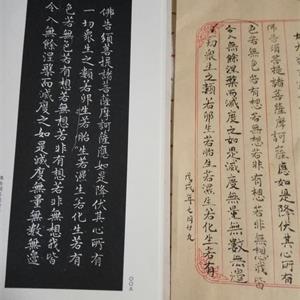 佛告須菩提諸菩薩摩訶薩應如是降伏其心所有
色若無色若有想若無想若非有想若非無想我皆
令入無餘涅槃而滅度之如是滅度無量無數無邊
一切衆生之類若卵生若胎生若濕生若化生若有
戊戌年七月廿九
佛告須菩提諸菩薩摩訶薩應如是降伏其心所有
一切衆生之類若卵生若胎生若濕生若化生若有
色若無色若有想若無想若非有想若非無想我皆
令入無餘涅槃而滅度之如是滅度無量無數無邊